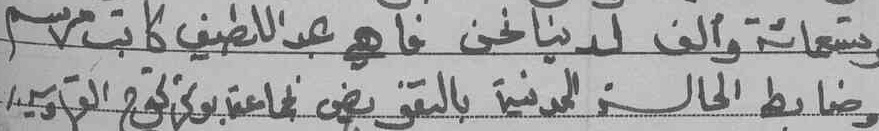 وتسعمائة وألف لدينا نحن فاهي عبد اللطيف كاتب مرسم
وضابط الحالة المدنية بالتفويض لجماعة